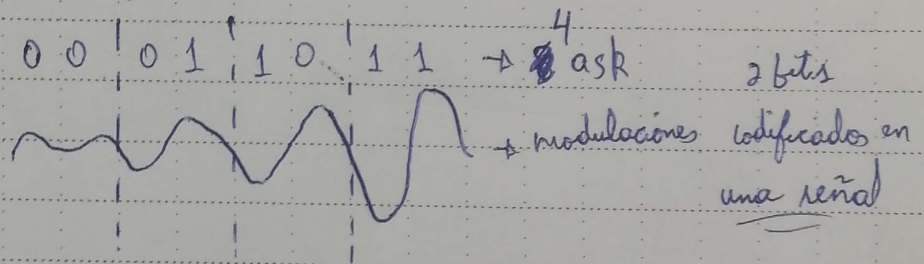 0 0 0 1 1 0 1 1 → 4 ask
2 bits
→ modulaciones codificados en
una señal